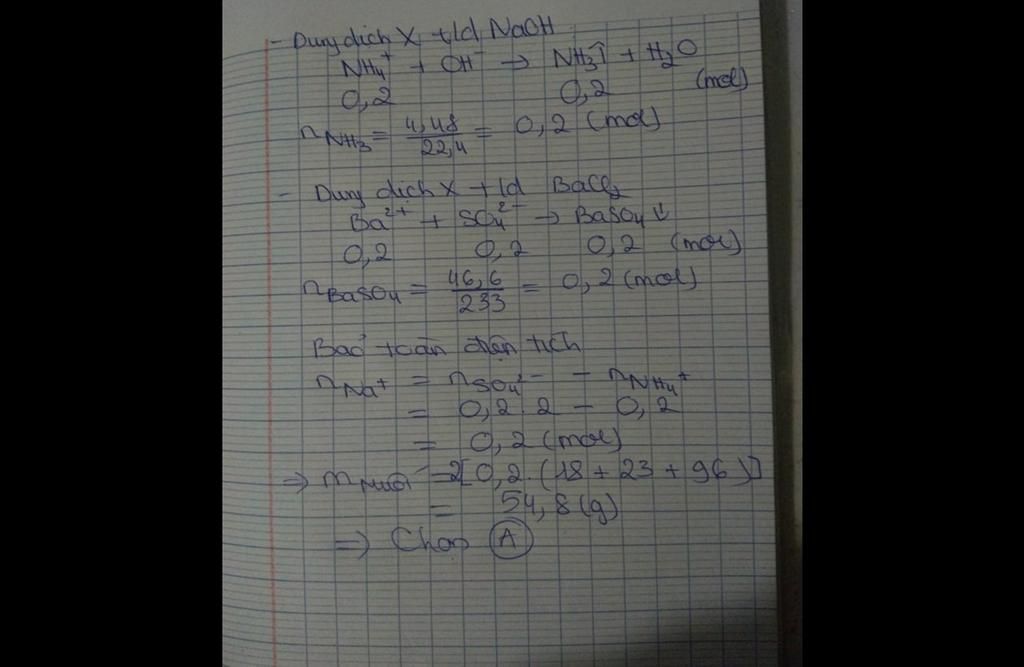 - Dung dịch X + ld NaOH
NH₄⁺ + OH⁻ → NH₃↑ + H₂O
0,2 0,2 (mol)
n NH₃ = 4,48 / 22,4 = 0,2 (mol)
- Dung dịch X + ld BaCl₂
Ba²⁺ + SO₄²⁻ → BaSO₄ ↓
0,2 0,2 0,2 (mol)
n BaSO₄ = 46,6 / 233 = 0,2 (mol)
Bảo toàn điện tích
n Na⁺ = n SO₄²⁻ - n NH₄⁺
= 0,2.2 - 0,2
= 0,2 (mol)
⇒ m muối = 2[0,2.(18 + 23 + 96)]
= 54,8 (g)
⇒ Chọn A